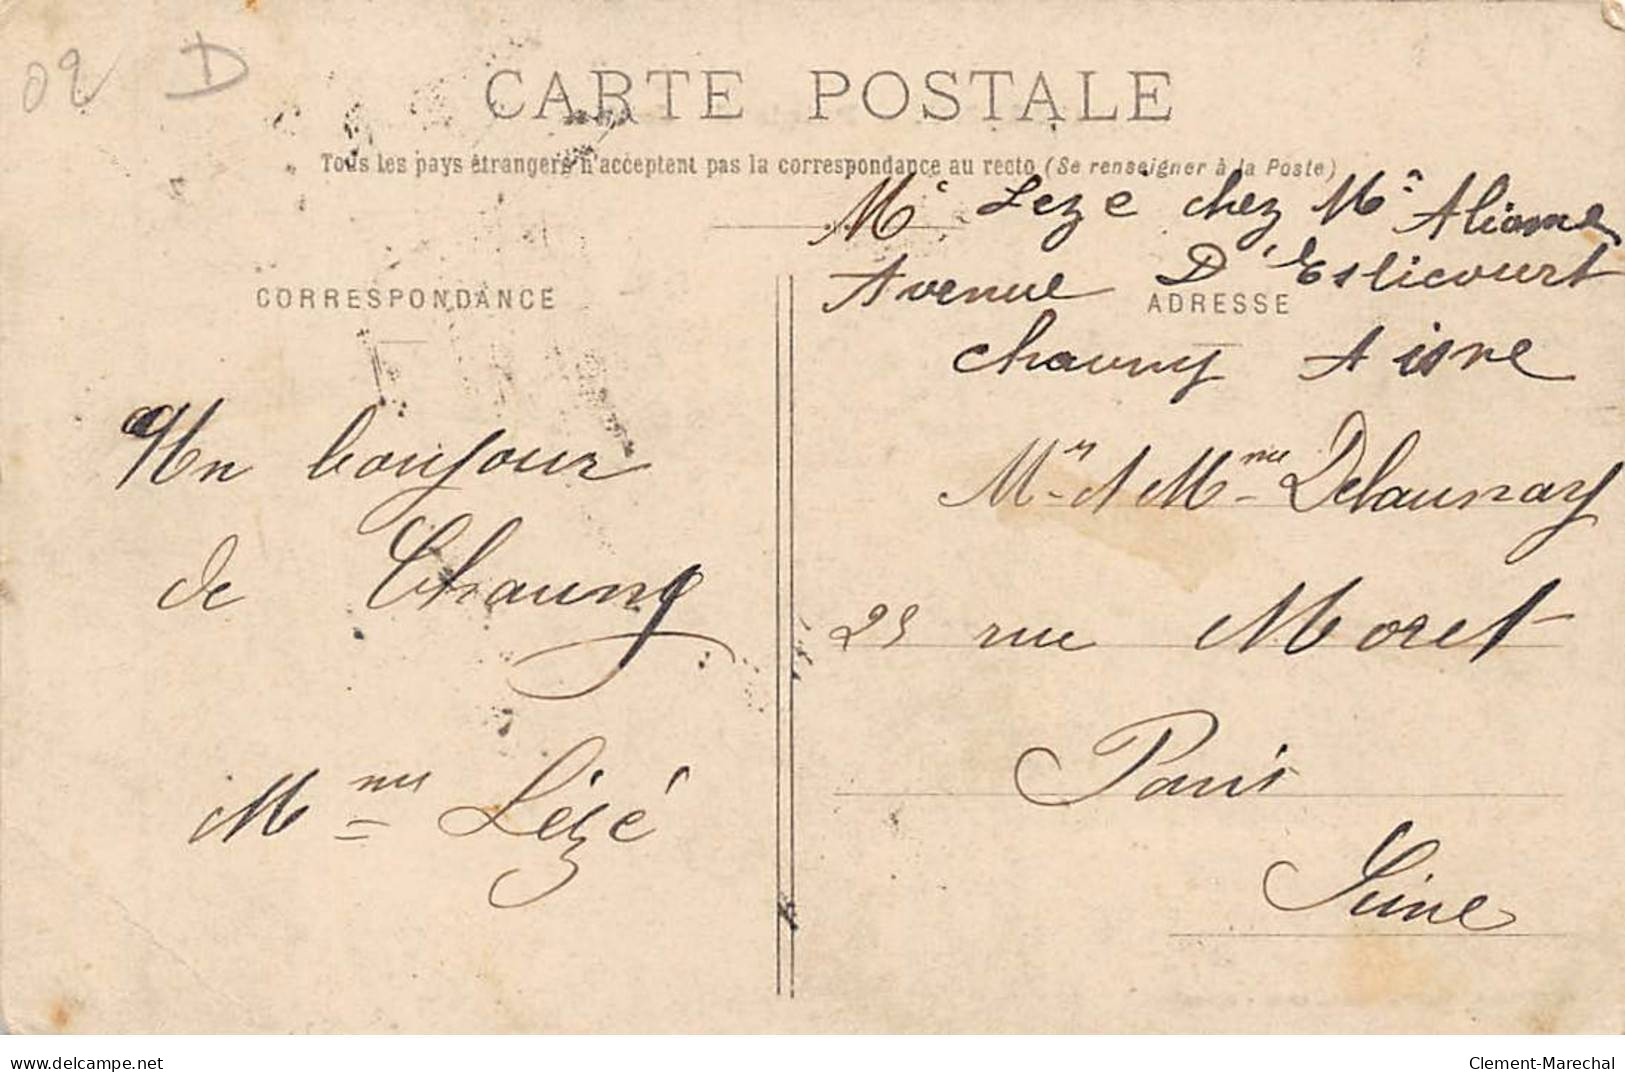 02 D
CARTE POSTALE
Tous les pays étrangers n'acceptent pas la correspondance au recto (Se renseigner à la Poste)
Me Lezé chez Mr Aliome
Avenue D'Eslicourt
Chauny Aisne
CORRESPONDANCE
ADRESSE
Un bonjour
de Chauny
Mme Lézé
Mr & Mme Delaunay
25 rue Moret
Paris
Seine
www.delcampe.net
Clement-Marechal